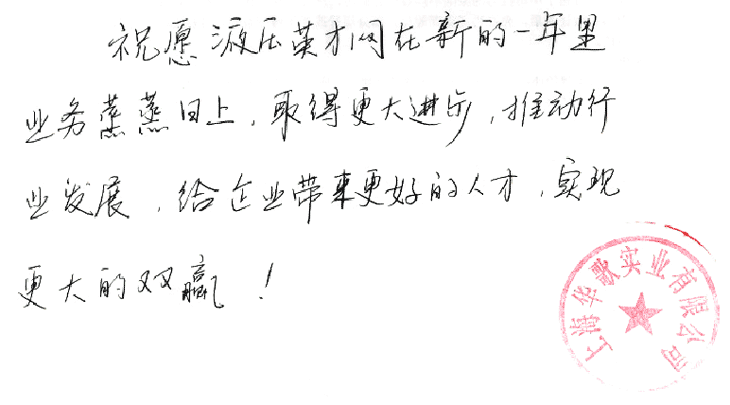 祝愿液压英才网在新的一年里
业务蒸蒸日上，取得更大进步，推动行
业发展，给企业带来更好的人才，实现
更大的双赢！
上海华歌实业有限公司